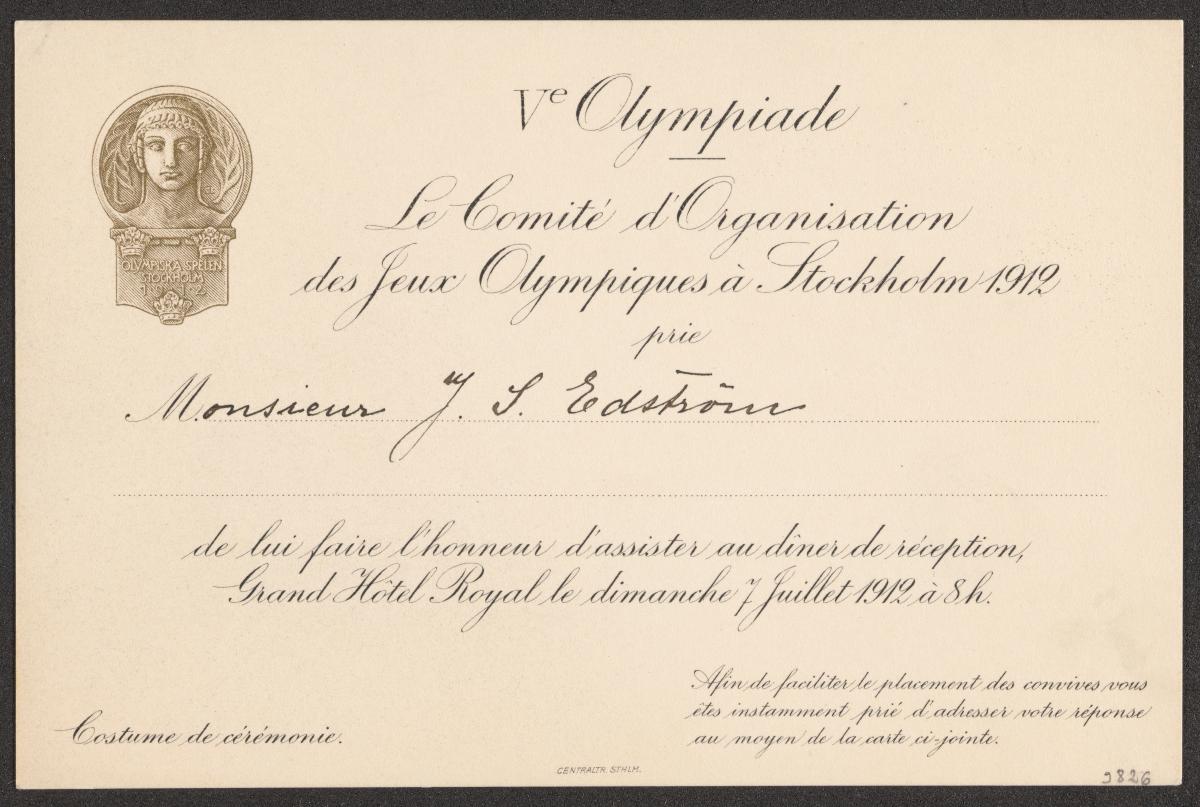 Ve Olympiade
Le Comité d'Organisation
des Jeux Olympiques à Stockholm 1912
prie
Monsieur J. S. Edström
de lui faire l'honneur d'assister au dîner de réception,
Grand Hôtel Royal le dimanche 7 Juillet 1912 à 8 h.
Afin de faciliter le placement des convives vous
êtes instamment prié d'adresser votre réponse
au moyen de la carte ci-jointe.
Costume de cérémonie.
OLYMPISKA SPELEN
STOCKHOLM
1912
CENTRALTR. STHLM.
9826